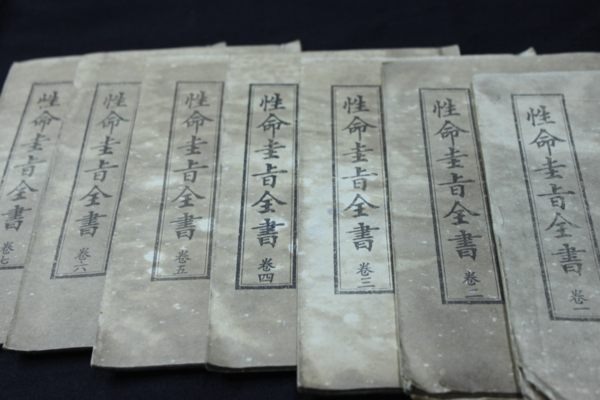 性命圭旨全書 卷一
性命圭旨全書 卷二
性命圭旨全書 卷三
性命圭旨全書 卷四
性命圭旨全書 卷五
性命圭旨全書 卷六
性命圭旨全書 卷七